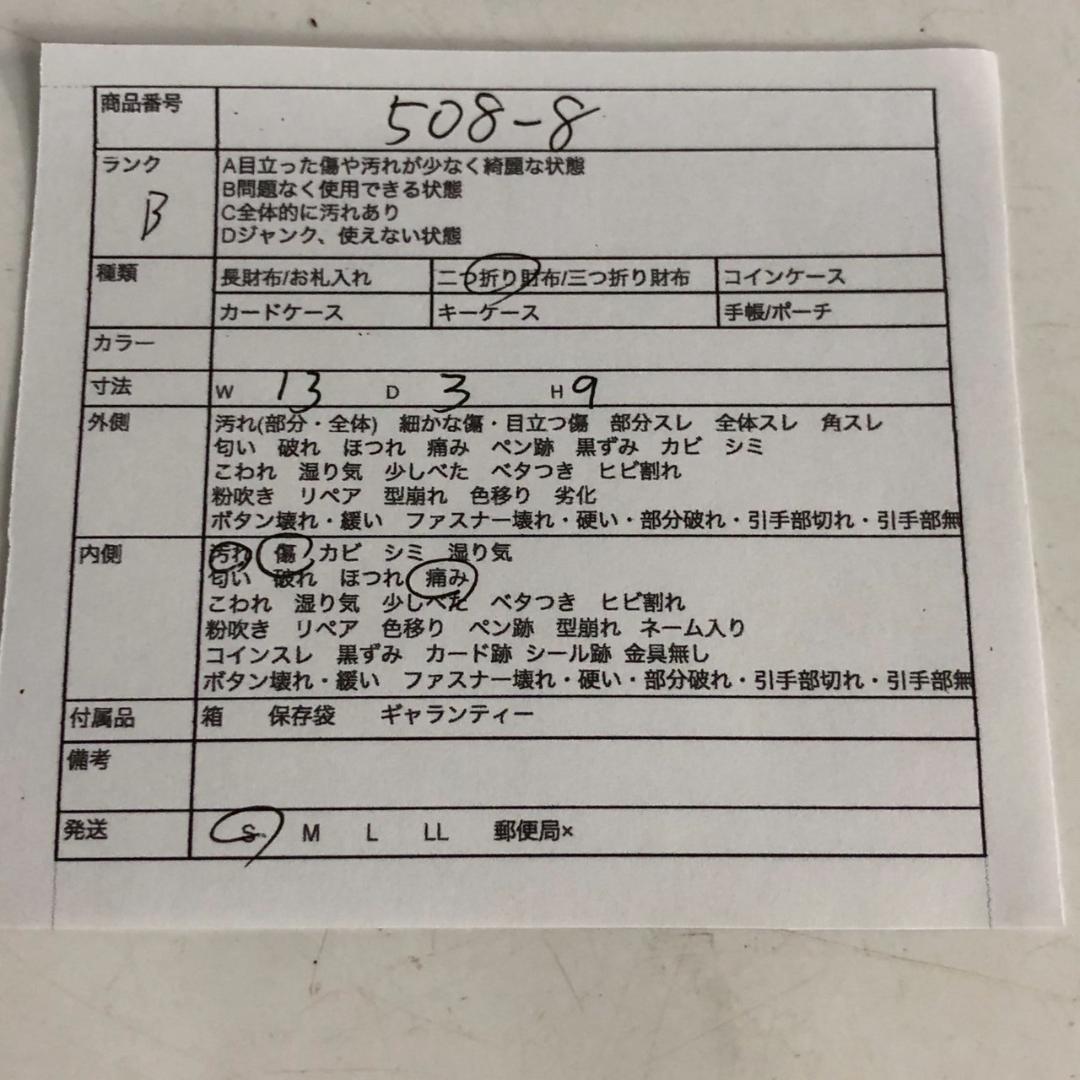 商品番号 508-8
ランク B
A目立った傷や汚れが少なく綺麗な状態
B問題なく使用できる状態
C全体的に汚れあり
Dジャンク、使えない状態
種類 長財布/お札入れ 二つ折り財布/三つ折り財布 コインケース
カードケース キーケース 手帳/ポーチ
カラー
寸法 W 13 D 3 H 9
外側 汚れ(部分・全体) 細かな傷・目立つ傷 部分スレ 全体スレ 角スレ
匂い 破れ ほつれ 痛み ペン跡 黒ずみ カビ シミ
こわれ 湿り気 少しべた ベタつき ヒビ割れ
粉吹き リペア 型崩れ 色移り 劣化
ボタン壊れ・緩い ファスナー壊れ・硬い・部分破れ・引手部切れ・引手部無
内側 汚れ 傷 カビ シミ 湿り気
匂い 破れ ほつれ 痛み
こわれ 湿り気 少しべた ベタつき ヒビ割れ
粉吹き リペア 色移り ペン跡 型崩れ ネーム入り
コインスレ 黒ずみ カード跡 シール跡 金具無し
ボタン壊れ・緩い ファスナー壊れ・硬い・部分破れ・引手部切れ・引手部無
付属品 箱 保存袋 ギャランティー
備考
発送 S M L LL 郵便局×